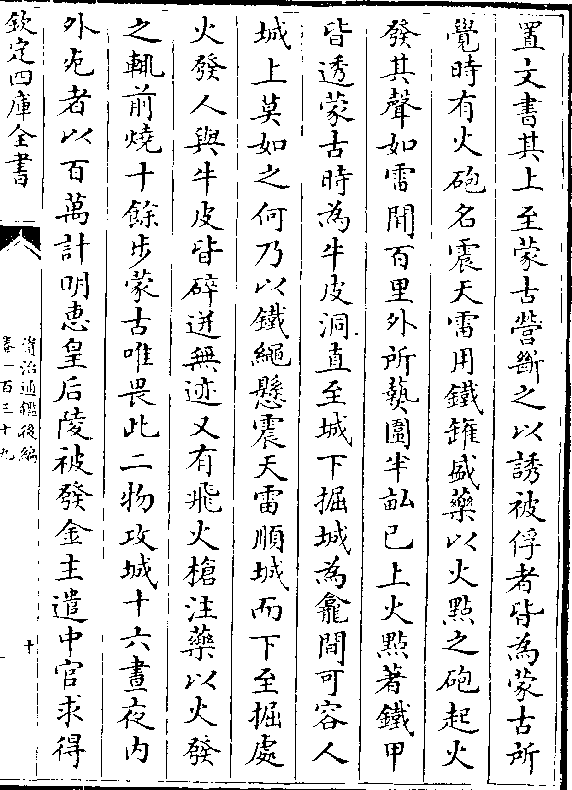 置文書其上至蒙古營斷之以誘被俘者皆為蒙古所
覺時有火砲名震天雷用鐵鑵盛藥以火點之砲起火
發其聲如雷聞百里外所爇圍半畝已上火點著鐵甲
皆透蒙古時為牛皮洞直至城下掘城為龕間可容人
城上莫如之何乃以鐵繩懸震天雷順城而下至掘處
火發人與牛皮皆碎迸無迹又有飛火槍注藥以火發
之輒前燒十餘步蒙古唯畏此二物攻城十六晝夜内
外死者以百萬計明惠皇后陵被發金主遣中官求得
欽定四庫全書
資治通鑑後編
卷一百三十九
十